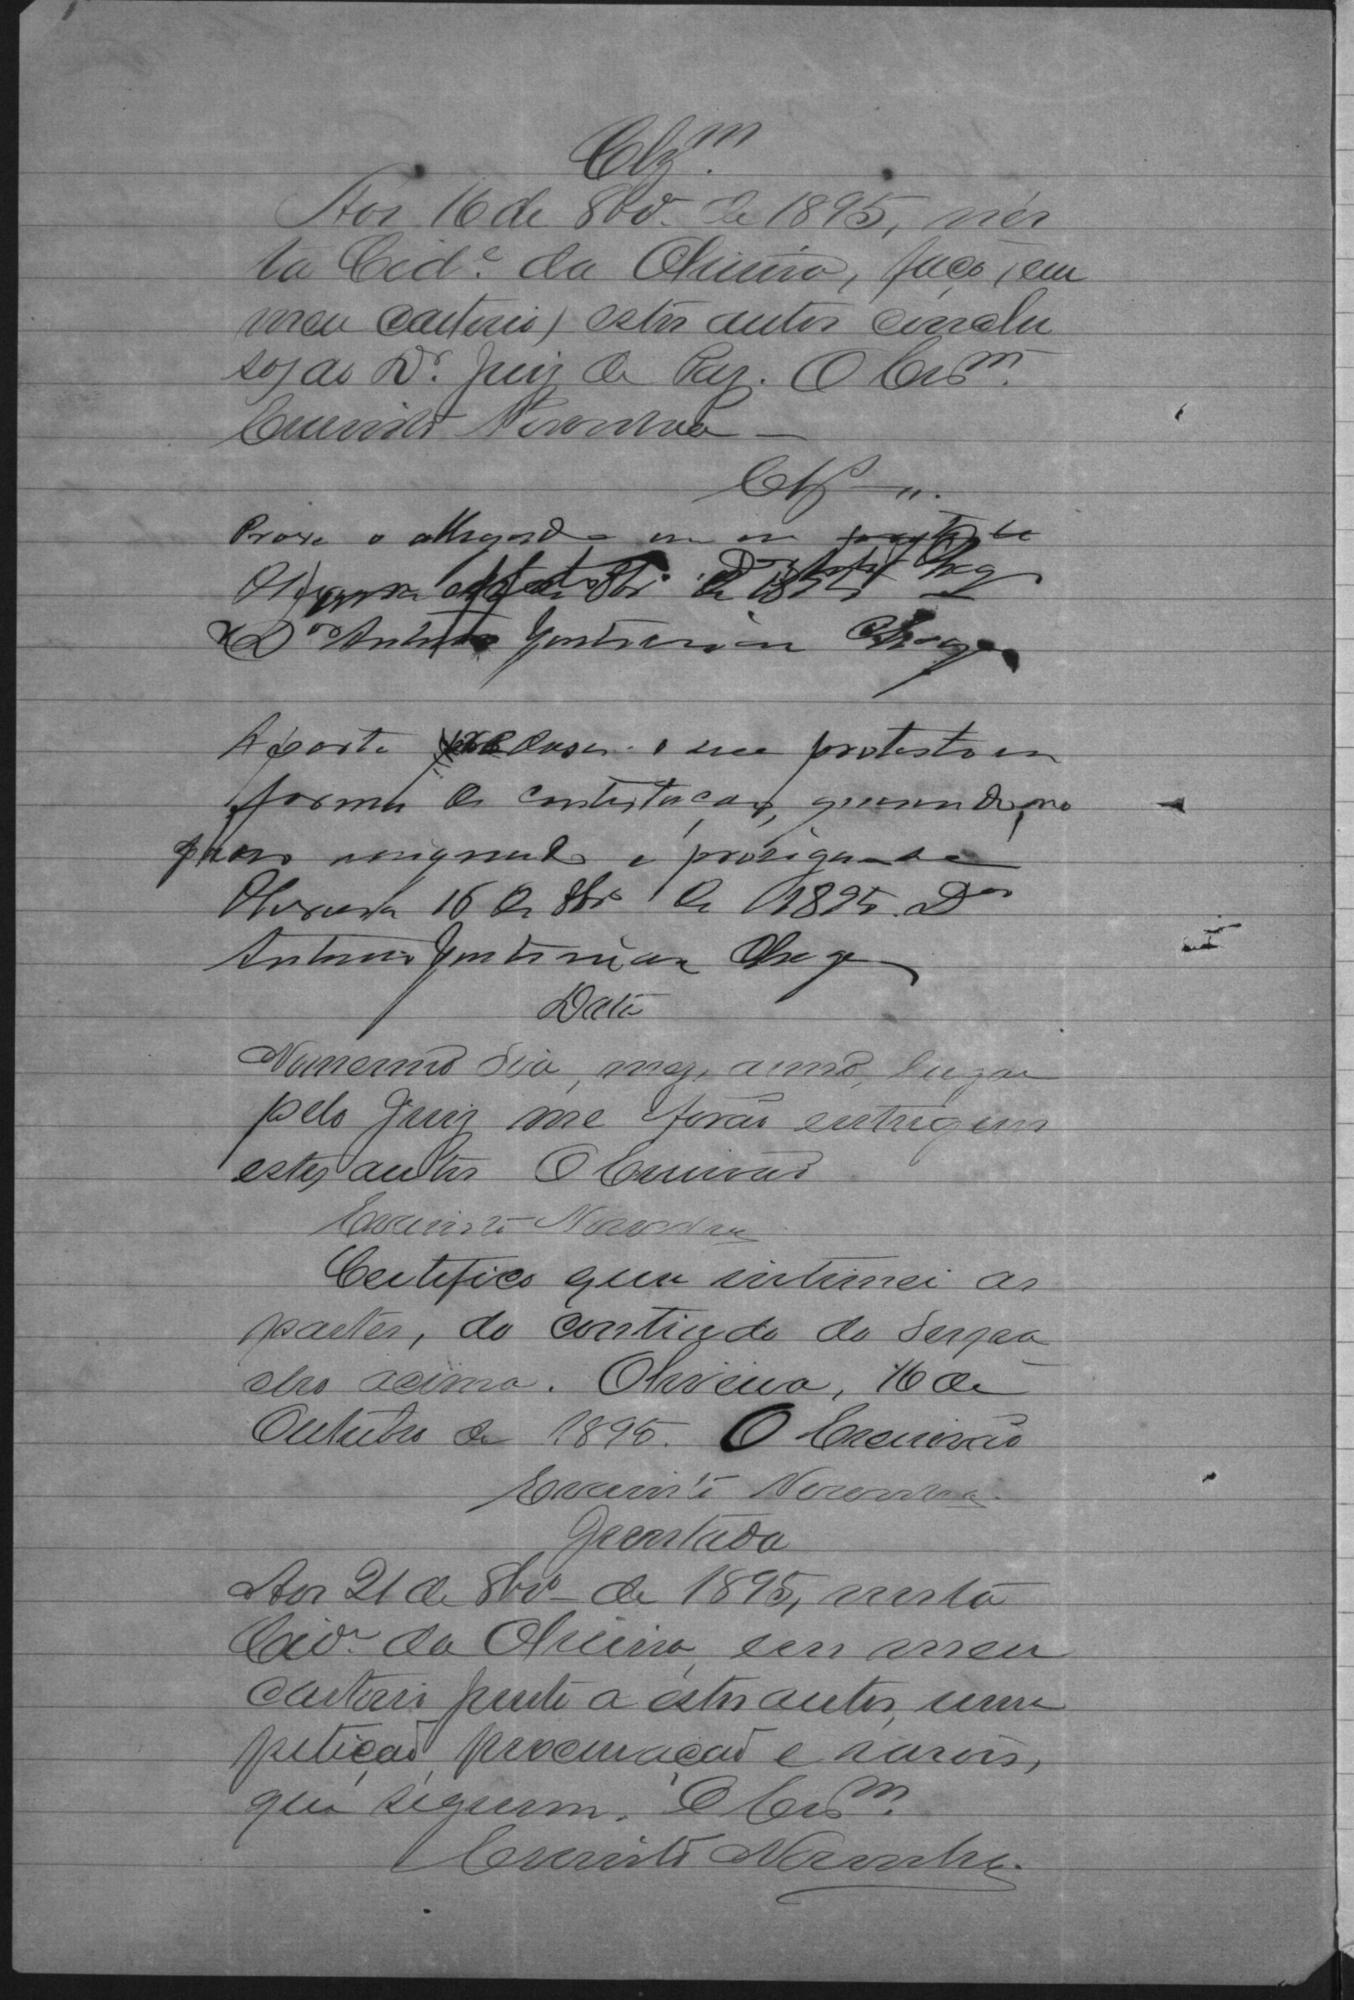 Clz.m
Aos 16 de 8bro. de 1895, nes
ta Cid.e da Oliveira, faço, (em
meu cartorio) estes autos conclu
sos ao Dr. Juiz de Paz. O Escm.
Evaristo Noronha
Clz
Prove o allegado
Oliveira de 8bro de 1895
Dor Antonio Justiniano Chagas
A parte o seu protesto em
forma de contestação, querendo, no
prazo assignado e prosiga-se
Oliveira 16 de 8bro de 1895. Dor
Antonio Justiniano Chagas
Data
No mesmo dia, mez, anno, lugar
pelo Juiz me forão entregues
estes autos O Escrivão
Evaristo Noronha
Certifico que intimei as
partes, do contiudo do despa
cho acima. Oliveira, 16 de
Outubro de 1895. O Escrivão
Evaristo Noronha.
Juntada
Aos 21 de 8bro de 1895, nesta
Cide. da Oliveira, em meu
cartorio junto a estes autos, uma
petição, procuração e razois,
que seguem. O Escm.
Evaristo Noronha.